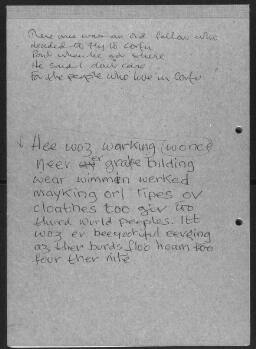 There once was an old fellow who
decided to fly to Corfu
But when he got there
He said I don't care
For the people who live in Corfu
Hee woz warking wonce
neer er grate bilding
wear wimmin werked
mayking orl tipes ov
cloathes too giv too
third world peoples. Itt
woz er beeyootiful eevning
az ther burds floo hoam too
four ther nite